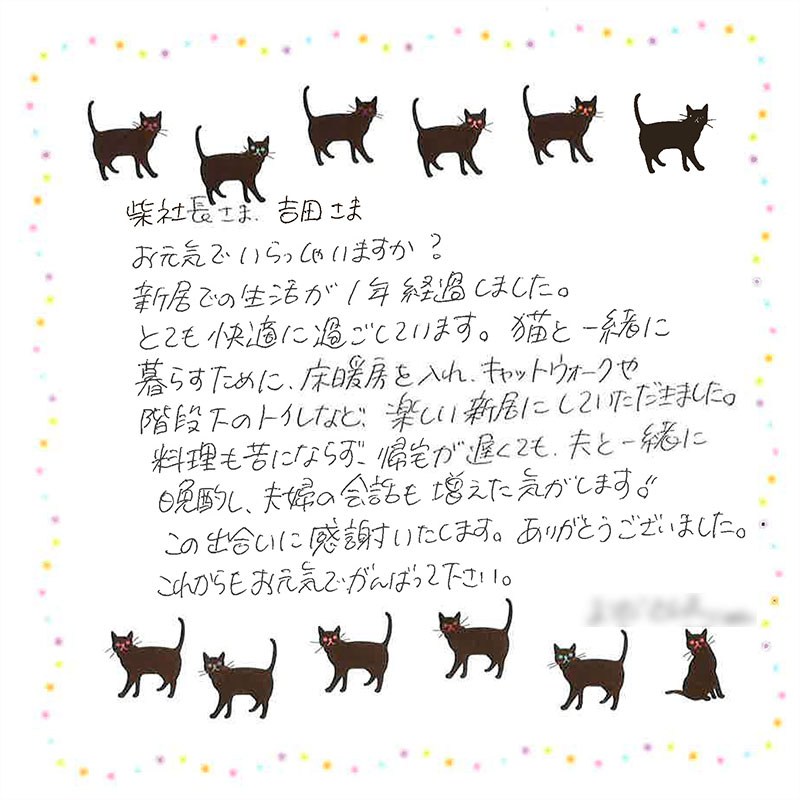 柴社長さま、吉田さま
お元気でいらっしゃいますか？
新居での生活が1年経過しました。
とても快適に過ごしています。猫と一緒に
暮らすために、床暖房を入れ、キャットウォークや
階段下のトイレなど、楽しい新居にしていただきました。
料理も苦にならず、帰宅が遅くても、夫と一緒に
晩酌し、夫婦の会話も増えた気がします!!
この出合いに感謝いたします。ありがとうございました。
これからもお元気でがんばって下さい。